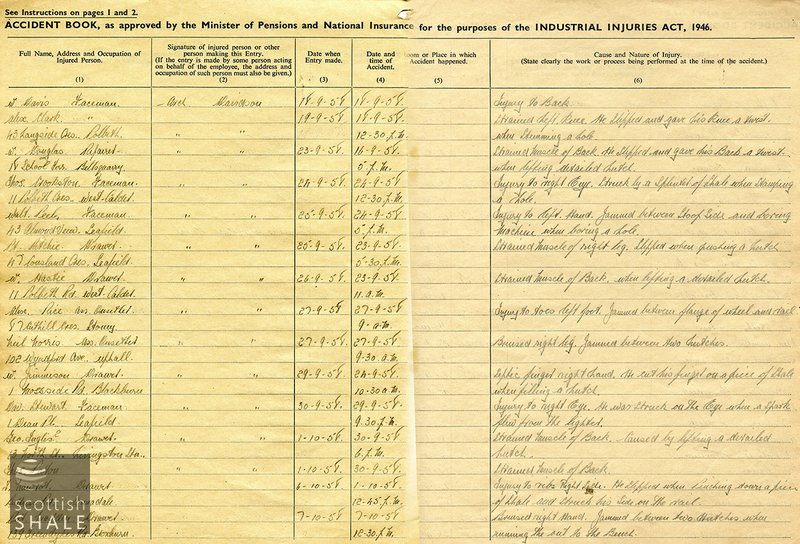 See Instructions on pages 1 and 2.
ACCIDENT BOOK, as approved by the Minister of Pensions and National Insurance for the purposes of the INDUSTRIAL INJURIES ACT, 1946.
Full Name, Address and Occupation of Injured Person. (1)
Signature of injured person or other person making this Entry. (If the entry is made by some person acting on behalf of the employee, the address and occupation of such person must also be given.) (2)
Date when Entry made. (3)
Date and time of Accident. (4)
oom or Place in which Accident happened. (5)
Cause and Nature of Injury. (State clearly the work or process being performed at the time of the accident.) (6)
W. Davis Faceman. Davidson 18-9-58 18-9-58. Injury to Back
Alex Clark " " " 19-9-58 18-9-58. Strained left Knee. He slipped and gave his Knee a twist
43 Langside Cres. Polbeth 12-30 p.m. when Stemming a hole.
W. Douglas " " 23-9-58 16-9-58. Strained Muscle of Back. He Slipped and gave his Back a twist
18 School Bellsquarry 5 p.m. when lifting derailed hutch.
Thos. Crookston Faceman " " 24-9-58. 24-9-58. Injury to right Eye. Struck by a Splinter of Shale when Stamping
11 Polbeth Cres. West-Calder 12-30 p.m. a hole.
Walt. Faceman " " 25-9-58. 24-9-58. Injury to left Hand. Jammed between Stoop Side and boring
43 Almond View. Seafield 5 p.m. machine when boring a hole.
Ritchie Drawer " " 25-9-58. 23-9-58. Strained Muscle of right leg. Slipped when pushing a hutch
47 Cousland Cres. Seafield 5-30 p.m.
W. Drawer " " 26-9-58. 23-9-58. Strained Muscle of Back. when lifting a derailed hutch.
11 Polbeth Rd. West-Calder. 11 a.m.
Alex. Ass. Onsetter " " 27-9-58. 27-9-58. Injury to toes left foot. Jammed between flange of wheel and rail
87 Cres. Stoney 9-a.m.
Neil Norris Ass. Onsetter " " 27-9-58. 27-9-58. Bruised right leg. Jammed between two hutches.
102 Wyndford Ave. Uphall 9-30 a.m.
W. Drawer " " 29-9-58 24-9-58. Septic finger right hand. He cut his finger on a piece of Shale
1 Mosside Rd. Blackburn 10-30 a.m. when filling a hutch.
Dav. Stewart Faceman " " 30-9-58. 29-9-58. Injury to right Eye. He was Struck on the Eye when a Spark
1 Dean Pl. Seafield 9.30 p.m. flew from the lighter.
Geo. Inglis Drawer " " 1-10-58. 30-9-58 Strained Muscle of Back. Caused by lifting a derailed
Livingston Sta. 6 p.m. hutch.
" " 1-10-58. 30-9-58. Strained Muscle of Back.
Drawer 6-10-58. 1-10-58. Injury to ribs right Side. He Slipped when pinching down a piece
12-45 p.m. of Shale and Struck his Side on the rail
7-10-58. 7-10-58. Bruised right Hand. Jammed between two Hutches when
Broxburn 12-30 p.m. running the out to the Bench.
scottish
SHALE